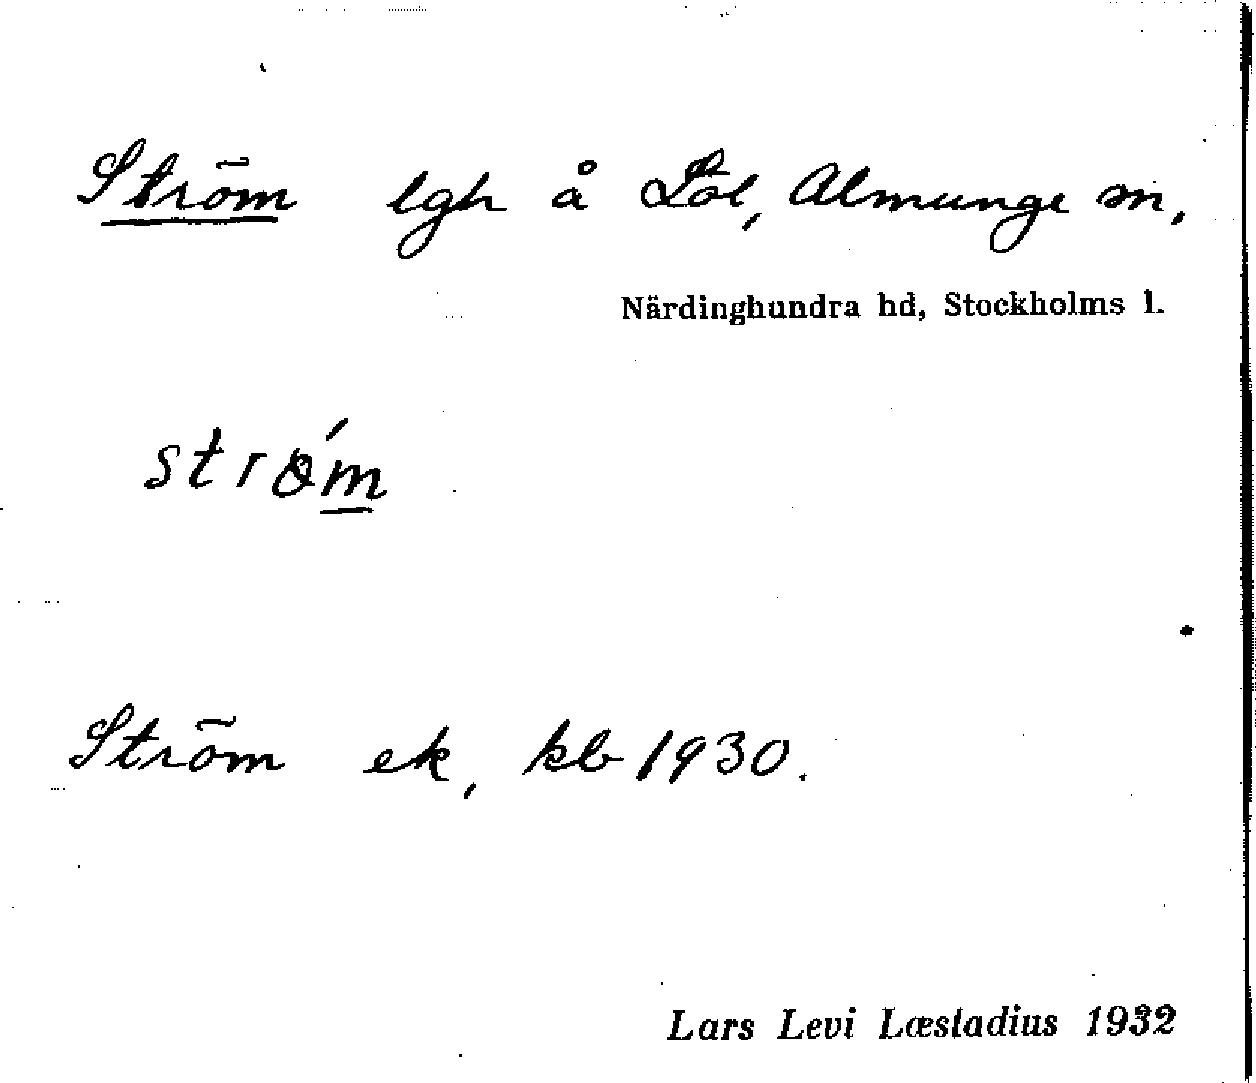 Ström lgh å Löl, Almunge sn,
Närdinghundra hd, Stockholms l.
strǿm
Ström ek, kb 1930.
Lars Levi Læstadius 1932